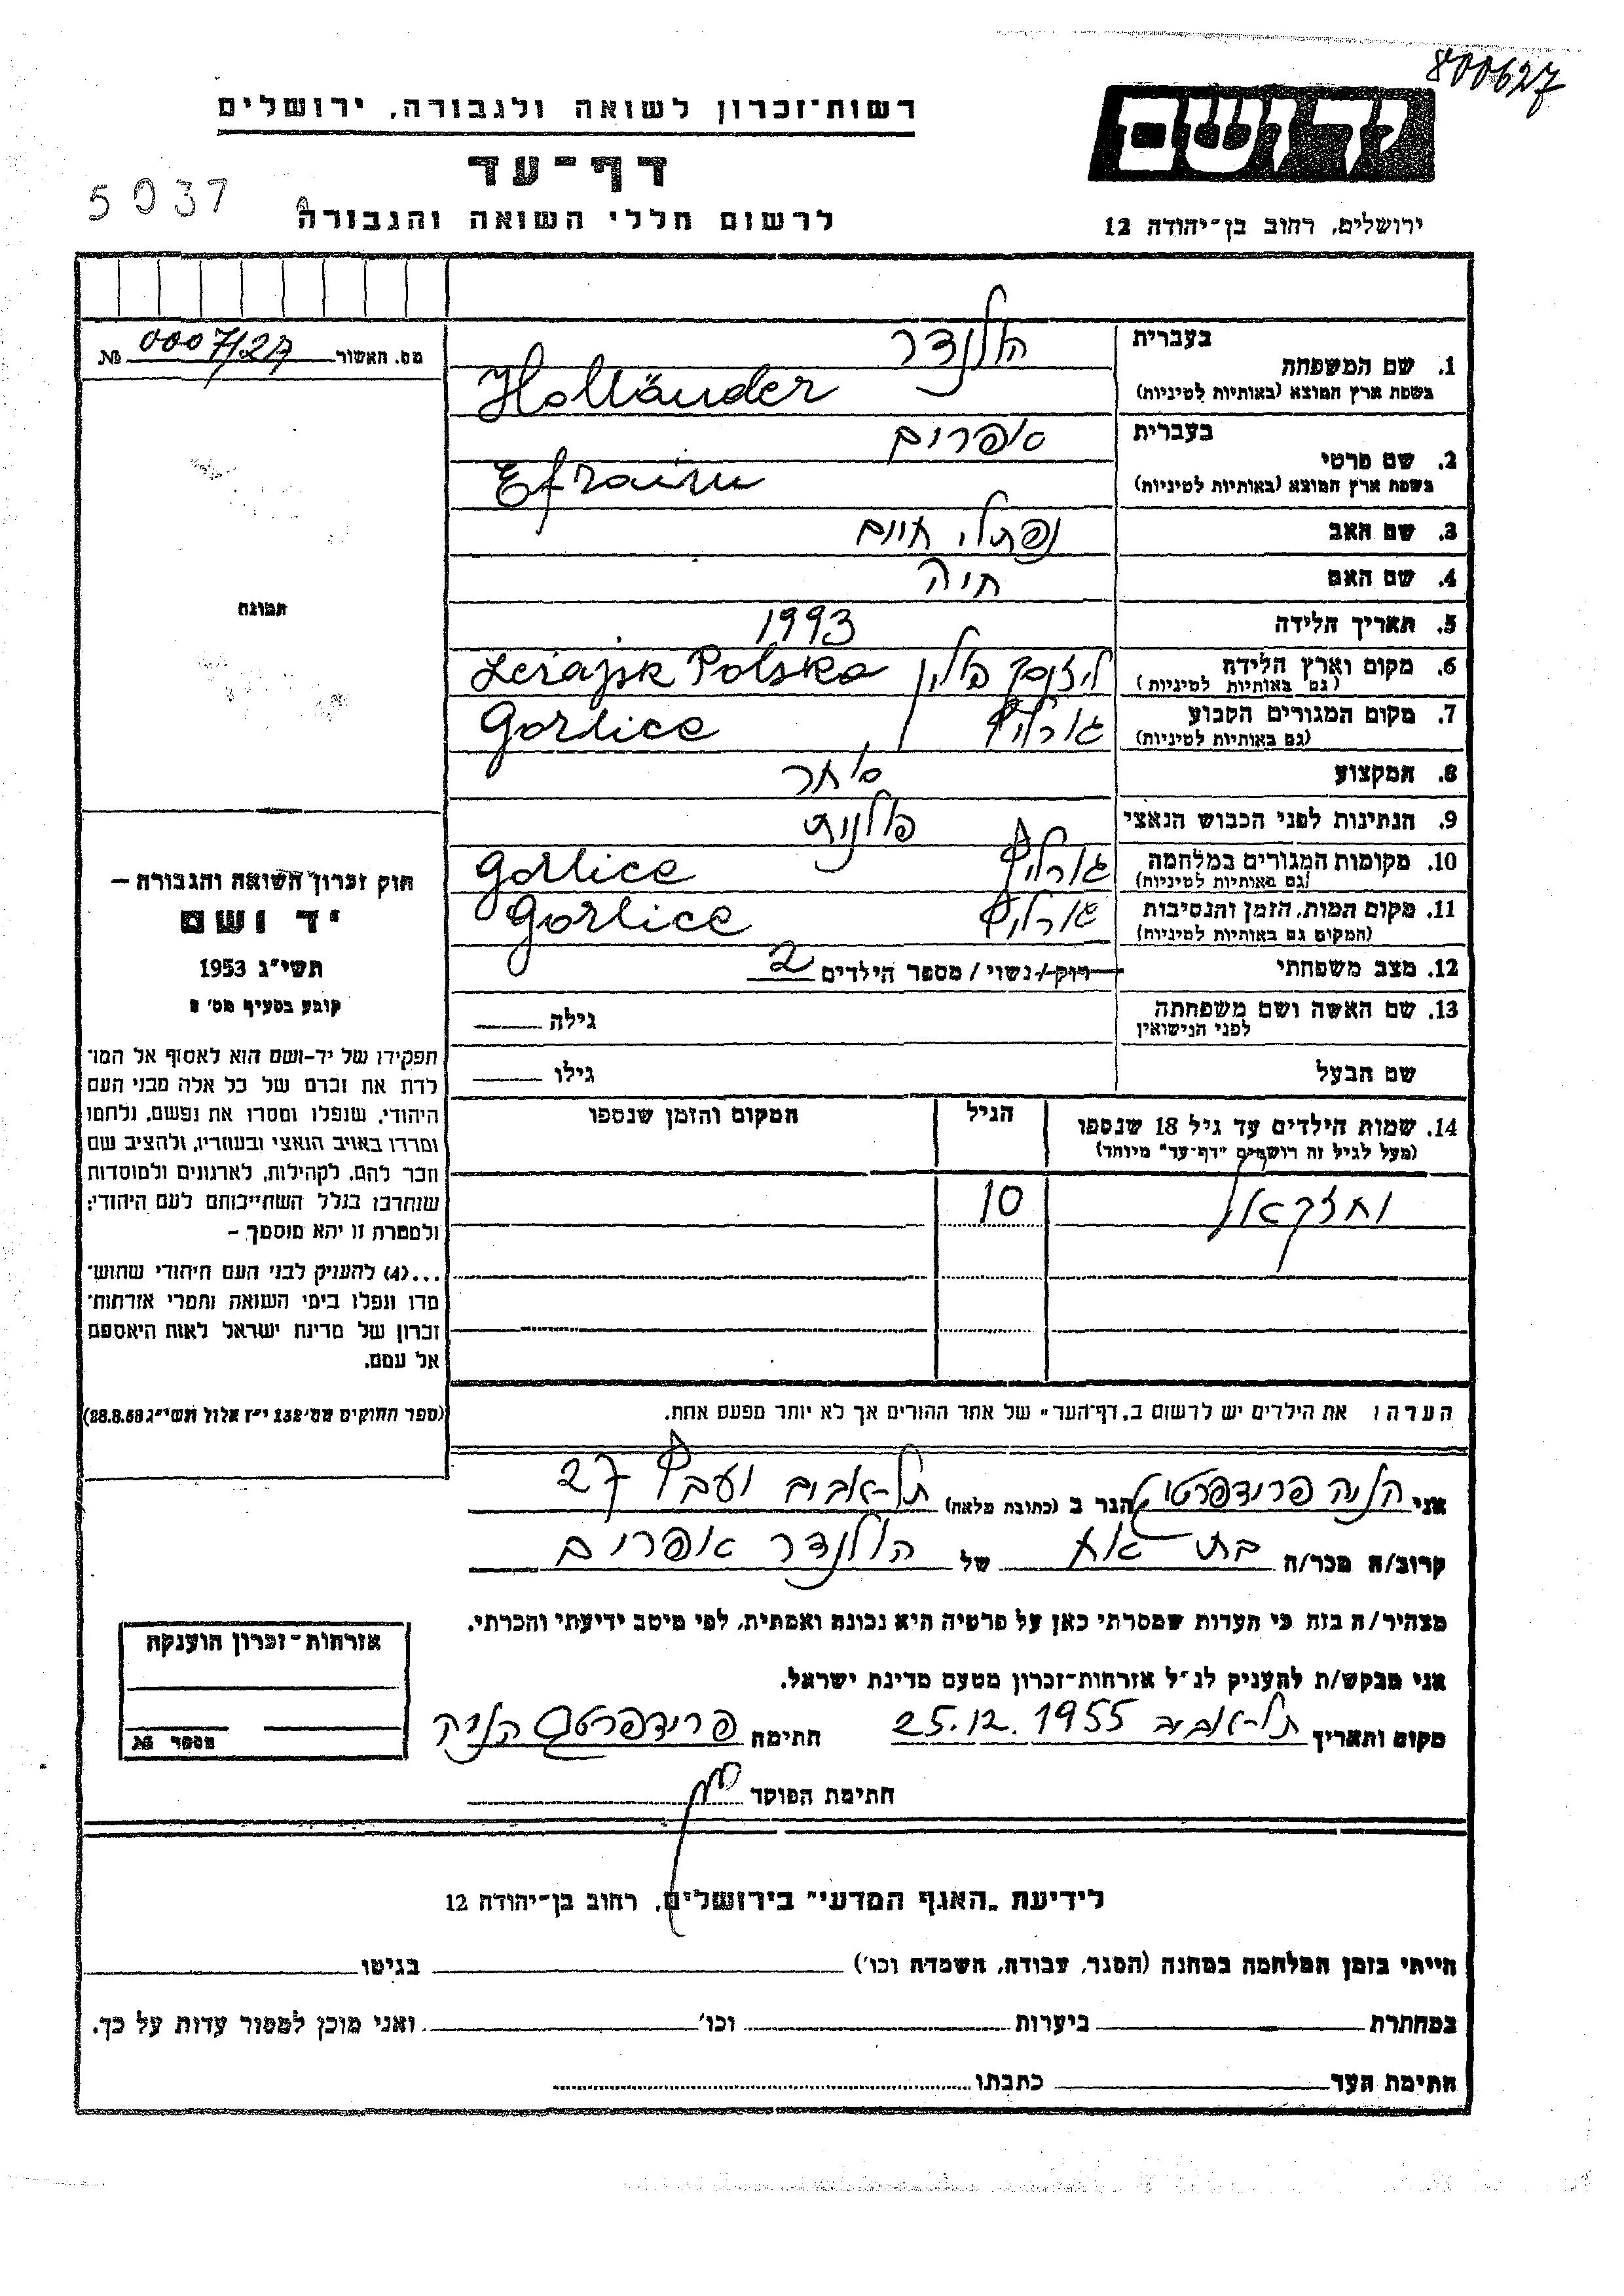 800627
רשות־זכרון לשואה ולגבורה, ירושלים
דף־עד
לרשום חללי השואה והגבורה
5037
ידושם
ירושלים, רחוב בן־יהודה 12
מס. האשור 0007/27 №
תמונה
חוק זכרון השואה והגבורה —
יד ושם
תשי"ג 1953
קובע בסעיף מס' 2
תפקידו של יד־ושם הוא לאסוף אל המו־
לדת את זכרם של כל אלה מבני העם
היהודי, שנפלו ומסרו את נפשם, נלחמו
ומרדו באויב הנאצי ובעוזריו, ולהציב שם
וזכר להם, לקהילות, לארגונים ולמוסדות
שנחרבו בגלל השתייכותם לעם היהודי;
ולמטרת זו יהא מוסמך —
...(4) להעניק לבני העם היהודי שהוש־
מדו ונפלו בימי השואה והמרי אזרחות־
זכרון של מדינת ישראל לאות היאספם
אל עמם.
(ספר החוקים מס' 132 י"ז אלול תשי"ג 28.8.53)
בעברית הולנדר
1. שם המשפחה
בשפת ארץ המוצא (באותיות לטיניות) Holländer
בעברית אפרים
2. שם פרטי
בשפת ארץ המוצא (באותיות לטיניות) Efraim
3. שם האב נפתלי חיים
4. שם האם חיה
5. תאריך הלידה 1993
6. מקום וארץ הלידה פולין Leżajsk Polska
(גם באותיות לטיניות)
7. מקום המגורים הקבוע גורליץ Gorlice
(גם באותיות לטיניות)
8. המקצוע סוחר
9. הנתינות לפני הכבוש הנאצי פולנית
10. מקומות המגורים במלחמה גורליץ Gorlice
(גם באותיות לטיניות)
11. מקום המות, הזמן והנסיבות גורליץ Gorlice
(המקום גם באותיות לטיניות)
12. מצב משפחתי רוק / נשוי / מספר הילדים 2
13. שם האשה ושם משפחתה גילה
לפני הנישואין
שם הבעל גילו
14. שמות הילדים עד גיל 18 שנספו הגיל המקום והזמן שנספו
(מעל לגיל זה רושמים "דף־עד" מיוחד)
יחזקאל 10
הערה: את הילדים יש לרשום ב"דף־העד" של אחד ההורים אך לא יותר מפעם אחת.
אני הניה הגר ב (כתובת מלאה) תל־אביב 27
קרוב/ה מכר/ה בת אח של הולנדר אפרים
מצהיר/ה בזה כי העדות שמסרתי כאן על פרטיה היא נכונה ואמתית, לפי מיטב ידיעתי והכרתי.
אני מבקש/ת להעניק לנ"ל אזרחות־זכרון מטעם מדינת ישראל.
מקום ותאריך תל־אביב 25.12.1955 חתימה הניה
חתימת הפוקד
אזרחות־זכרון הוענקה
מספר №
לידיעת "האגף המדעי" בירושלים, רחוב בן־יהודה 12
הייתי בזמן המלחמה במחנה (הסגר, עבודה, השמדה וכו') בגיטו
במחתרת ביערות וכו' ואני מוכן למסור עדות על כך.
חתימת העד כתבתו